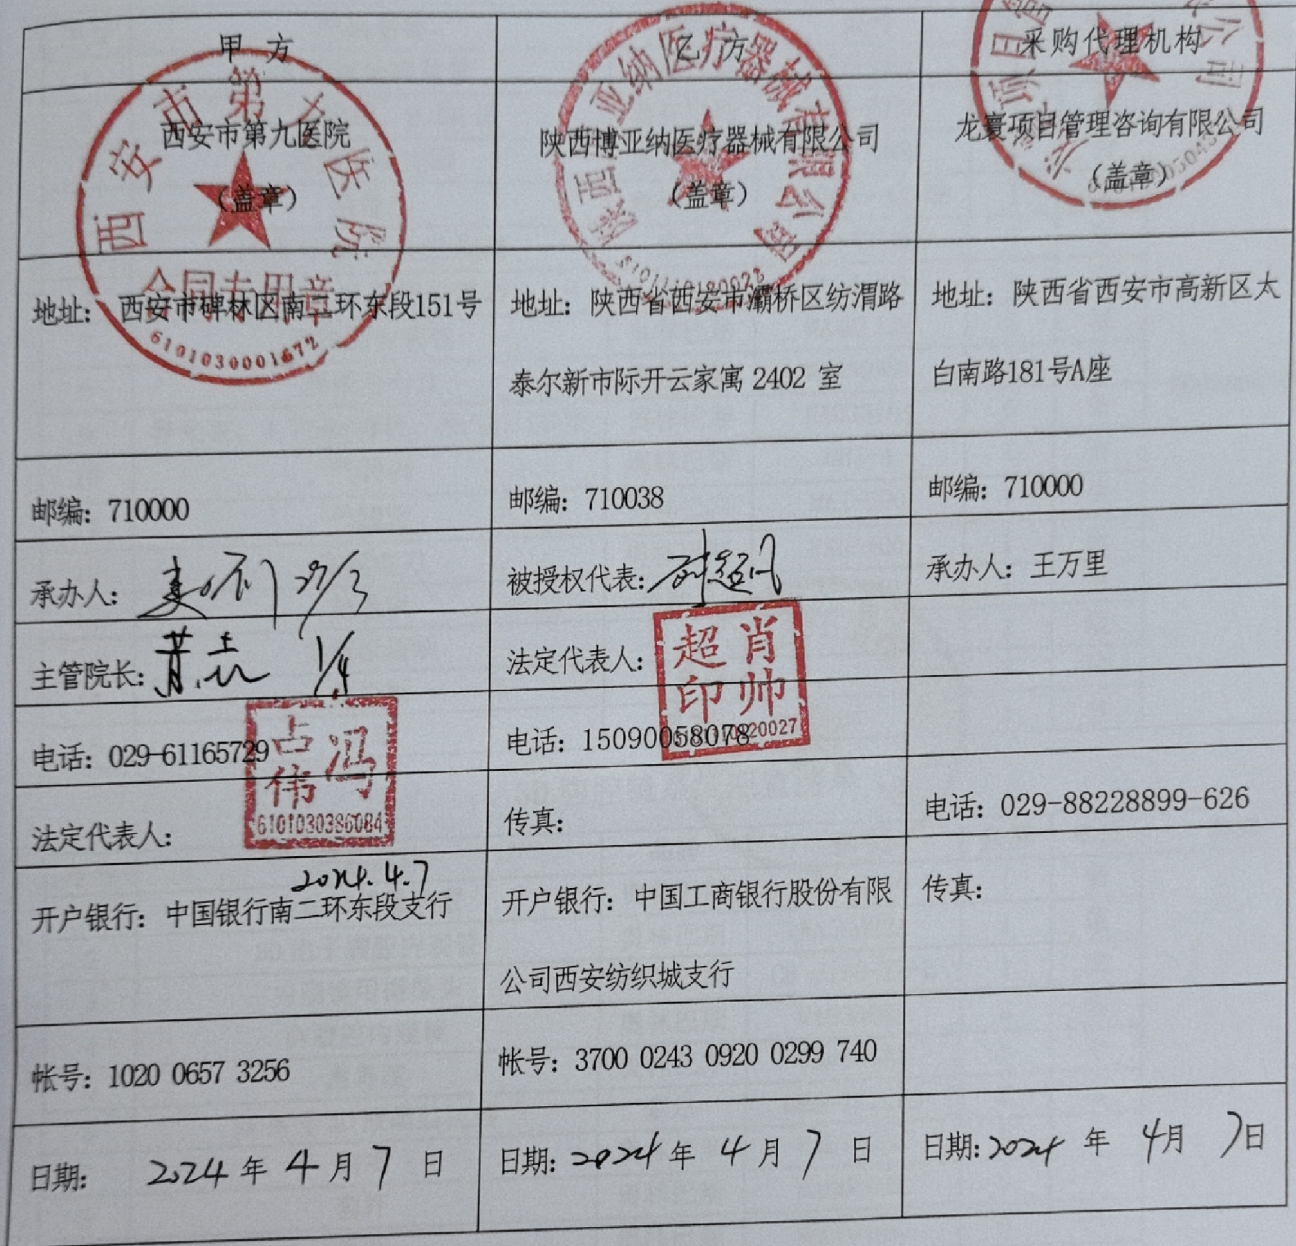 甲 方
乙 方
采购代理机构
西安市第九医院
（盖章）
陕西博亚纳医疗器械有限公司
（盖章）
龙寰项目管理咨询有限公司
（盖章）
西安市第九医院
合同专用章
6101030001672
陕西博亚纳医疗器械有限公司
地址：西安市碑林区南二环东段151号
地址：陕西省西安市灞桥区纺渭路
泰尔新市际开云家寓 2402 室
地址：陕西省西安市高新区太
白南路181号A座
邮编：710000
邮编：710038
邮编：710000
承办人： 27/3
被授权代表：
承办人：王万里
主管院长： 1/4
法定代表人：
肖帅
超印
电话：029-61165729
电话：15090058078
法定代表人：
冯
占伟
6101030386084
2024.4.7
传真：
电话：029-88228899-626
开户银行：中国银行南二环东段支行
开户银行：中国工商银行股份有限
公司西安纺织城支行
传真：
帐号：1020 0657 3256
帐号：3700 0243 0920 0299 740
日期： 2024 年 4 月 7 日
日期：2024 年 4 月 7 日
日期：2024 年 4月 7日